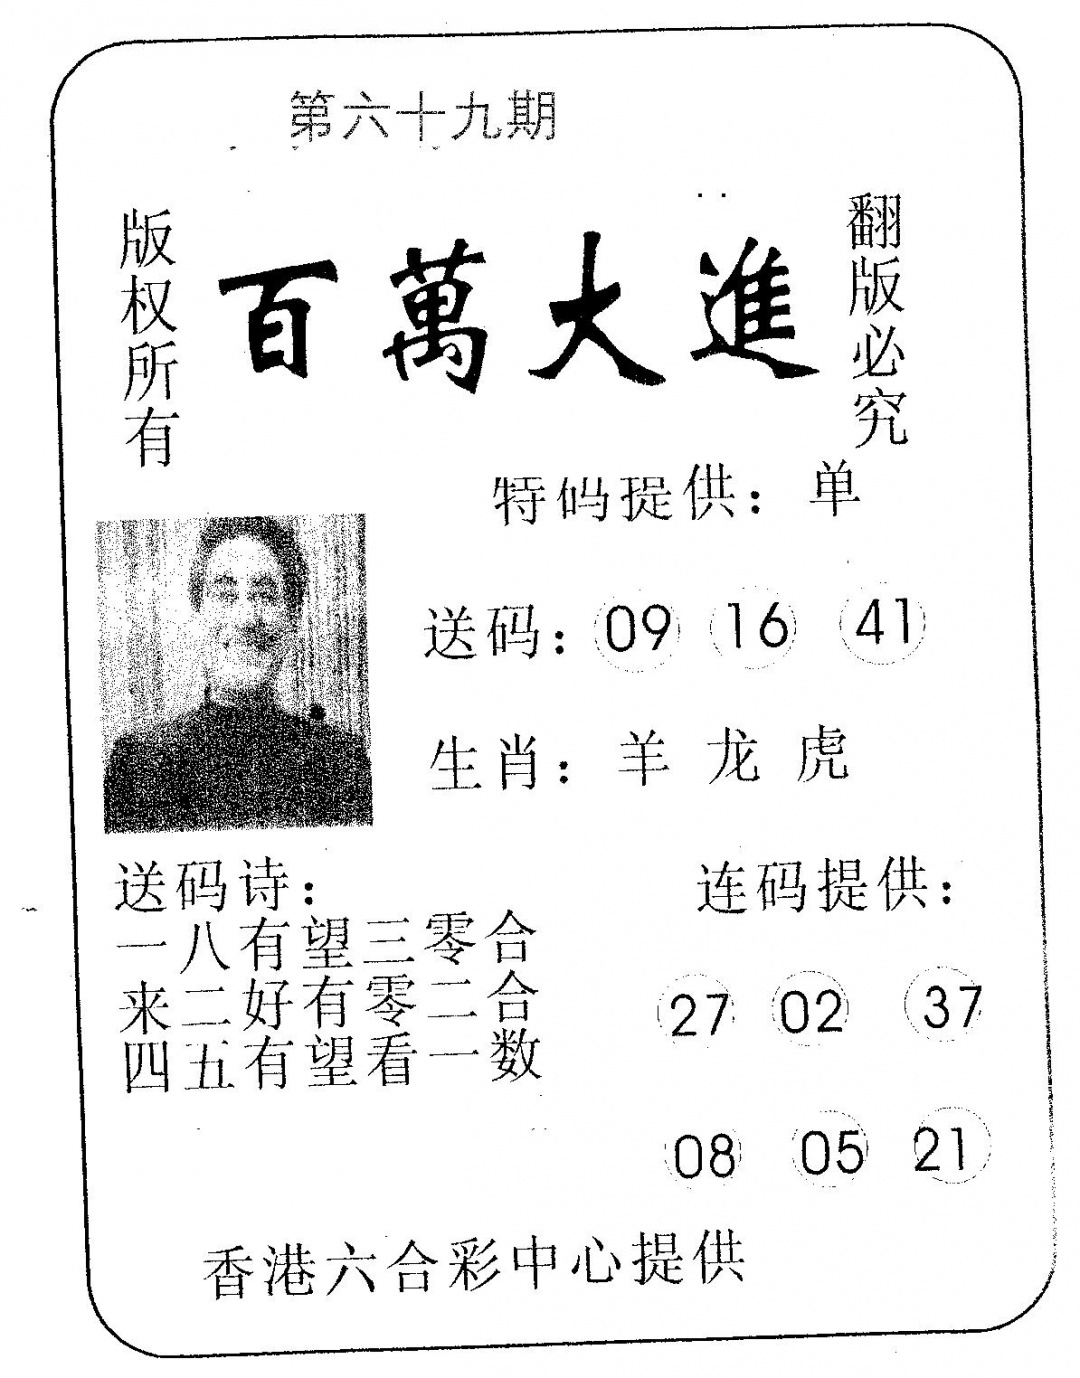 第六十九期
版权所有
百萬大進
翻版必究
特码提供：单
送码：09 16 41
生肖：羊 龙 虎
送码诗：
一八有望三零合
来二好有零二合
四五有望看一数
连码提供：
27 02 37
08 05 21
香港六合彩中心提供